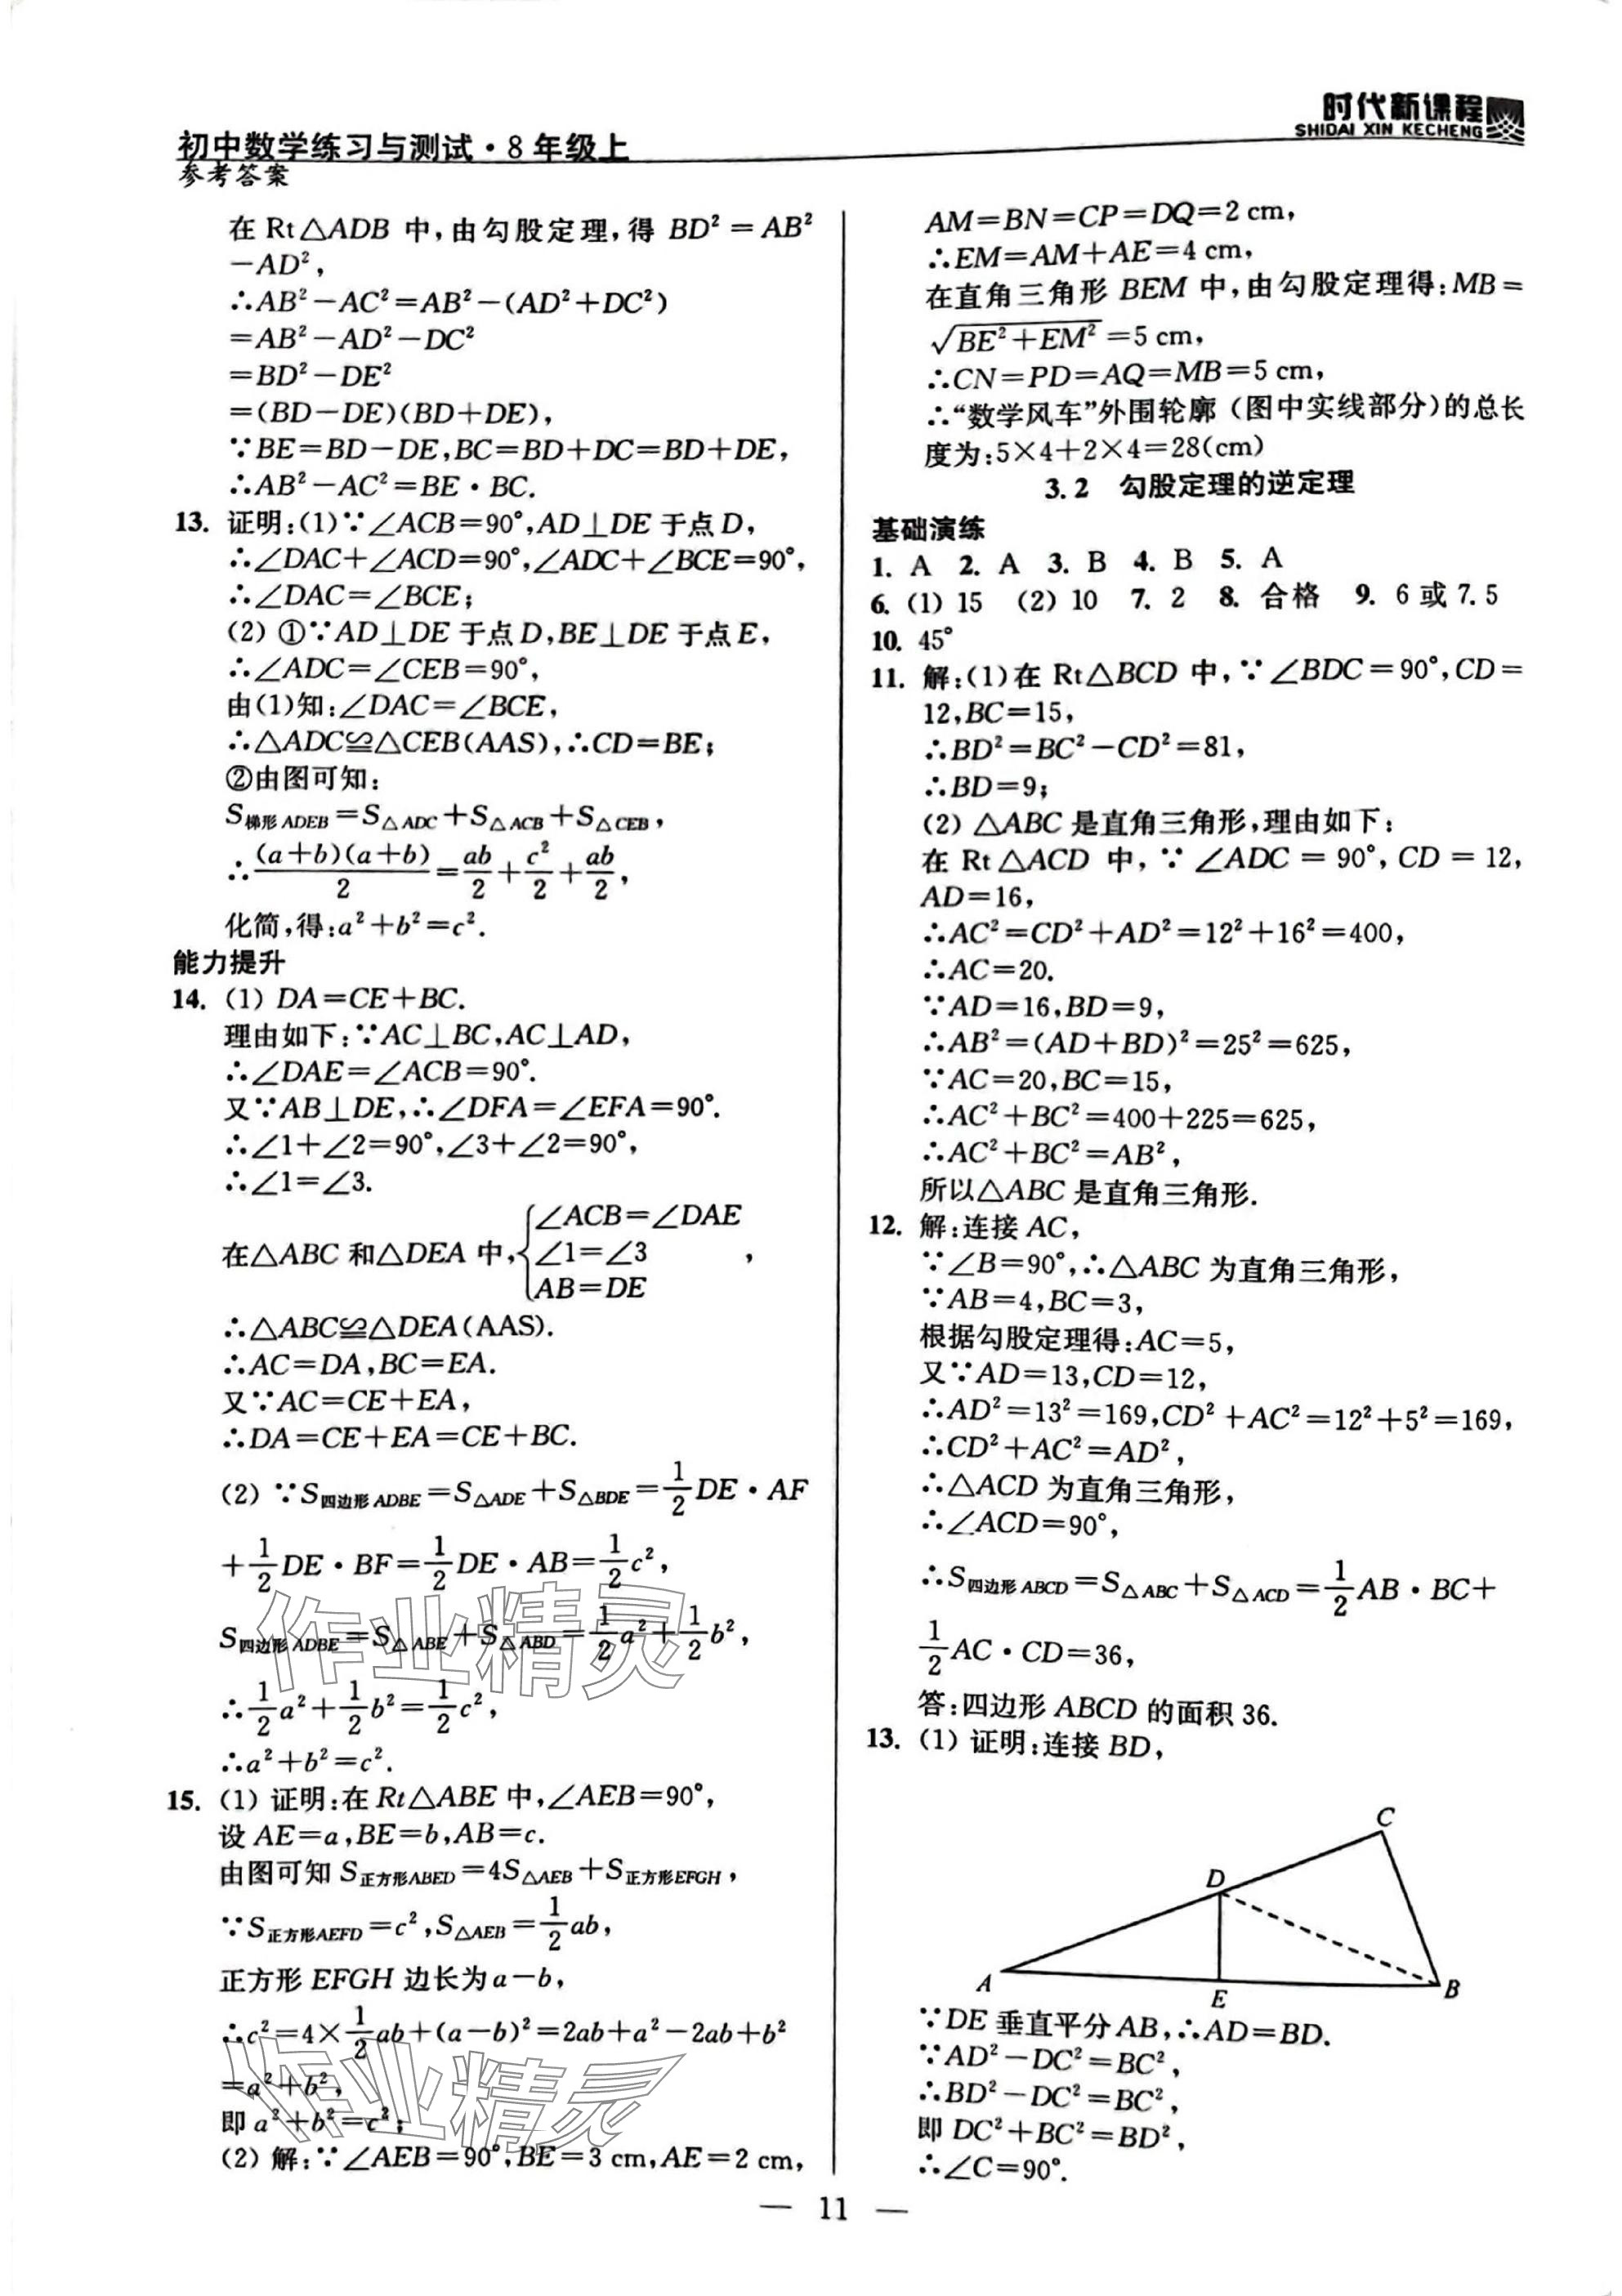 时代新课程
SHIDAI XIN KECHENG
初中数学练习与测试·8年级上
参考答案
在 Rt△ADB 中,由勾股定理,得 BD²=AB²
-AD²,
∴AB²-AC²=AB²-(AD²+DC²)
=AB²-AD²-DC²
=BD²-DE²
=(BD-DE)(BD+DE),
∵BE=BD-DE,BC=BD+DC=BD+DE,
∴AB²-AC²=BE·BC.
13. 证明:(1)∵∠ACB=90°,AD⊥DE于点D,
∴∠DAC+∠ACD=90°,∠ADC+∠BCE=90°,
∴∠DAC=∠BCE;
(2) ①∵AD⊥DE于点D,BE⊥DE于点E,
∴∠ADC=∠CEB=90°,
由(1)知:∠DAC=∠BCE,
∴△ADC≌△CEB(AAS),∴CD=BE;
②由图可知:
S梯形ADEB=S△ADC+S△ACB+S△CEB,
∴(a+b)(a+b)/2=ab/2+c²/2+ab/2,
化简,得:a²+b²=c².
能力提升
14. (1) DA=CE+BC.
理由如下:∵AC⊥BC,AC⊥AD,
∴∠DAE=∠ACB=90°.
又∵AB⊥DE,∴∠DFA=∠EFA=90°.
∴∠1+∠2=90°,∠3+∠2=90°,
∴∠1=∠3.
∠ACB=∠DAE
在△ABC和△DEA中,{∠1=∠3 ,
AB=DE
∴△ABC≌△DEA(AAS).
∴AC=DA,BC=EA.
又∵AC=CE+EA,
∴DA=CE+EA=CE+BC.
(2) ∵S四边形ADBE=S△ADE+S△BDE=1/2DE·AF
+1/2DE·BF=1/2DE·AB=1/2c²,
S四边形ADBE=S△ABE+S△ABD=1/2a²+1/2b²,
∴1/2a²+1/2b²=1/2c²,
∴a²+b²=c².
15. (1) 证明:在Rt△ABE中,∠AEB=90°,
设AE=a,BE=b,AB=c.
由图可知S正方形ABED=4S△AEB+S正方形EFGH,
∵S正方形AEFD=c²,S△AEB=1/2ab,
正方形EFGH边长为a-b,
∴c²=4×1/2ab+(a-b)²=2ab+a²-2ab+b²
=a²+b²,
即a²+b²=c²;
(2) 解:∵∠AEB=90°,BE=3 cm,AE=2 cm,
AM=BN=CP=DQ=2 cm,
∴EM=AM+AE=4 cm,
在直角三角形BEM中,由勾股定理得:MB=
√(BE²+EM²)=5 cm,
∴CN=PD=AQ=MB=5 cm,
∴“数学风车”外围轮廓(图中实线部分)的总长
度为:5×4+2×4=28(cm)
3.2 勾股定理的逆定理
基础演练
1. A 2. A 3. B 4. B 5. A
6. (1) 15 (2) 10 7. 2 8. 合格 9. 6或7.5
10. 45°
11. 解:(1)在 Rt△BCD 中,∵∠BDC=90°,CD=
12,BC=15,
∴BD²=BC²-CD²=81,
∴BD=9;
(2) △ABC是直角三角形,理由如下:
在 Rt△ACD 中,∵∠ADC=90°,CD=12,
AD=16,
∴AC²=CD²+AD²=12²+16²=400,
∴AC=20.
∵AD=16,BD=9,
∴AB²=(AD+BD)²=25²=625,
∵AC=20,BC=15,
∴AC²+BC²=400+225=625,
∴AC²+BC²=AB²,
所以△ABC是直角三角形.
12. 解:连接AC,
∵∠B=90°,∴△ABC为直角三角形,
∵AB=4,BC=3,
根据勾股定理得:AC=5,
又∵AD=13,CD=12,
∴AD²=13²=169,CD²+AC²=12²+5²=169,
∴CD²+AC²=AD²,
∴△ACD为直角三角形,
∴∠ACD=90°,
∴S四边形ABCD=S△ABC+S△ACD=1/2AB·BC+
1/2AC·CD=36,
答:四边形ABCD的面积36.
13. (1) 证明:连接BD,
C
D
A
E
B
∵DE垂直平分AB,∴AD=BD.
∵AD²-DC²=BC²,
∴BD²-DC²=BC²,
即DC²+BC²=BD²,
∴∠C=90°.
— 11 —
作业精灵
作业精灵